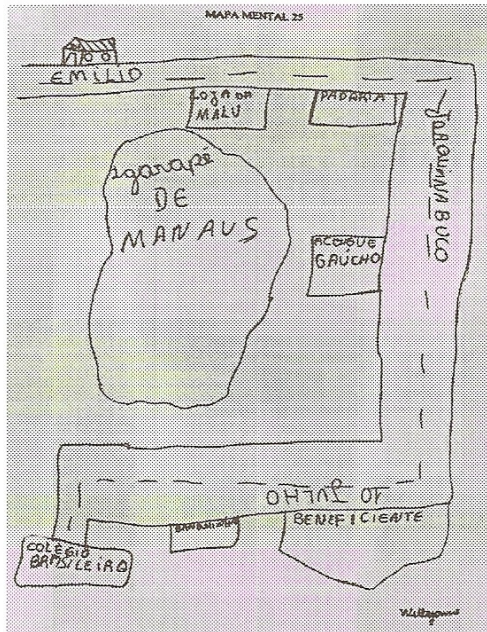 MAPA MENTAL 25
EMILIO
LOJA DA
MALU
PADARIA
JOAQUINNABUCO
Igarapé
DE
MANAUS
AÇOUGUE
GAÚCHO
10 JULHO
BENEFICIENTE
COLÉGIO
BRASILEIRO